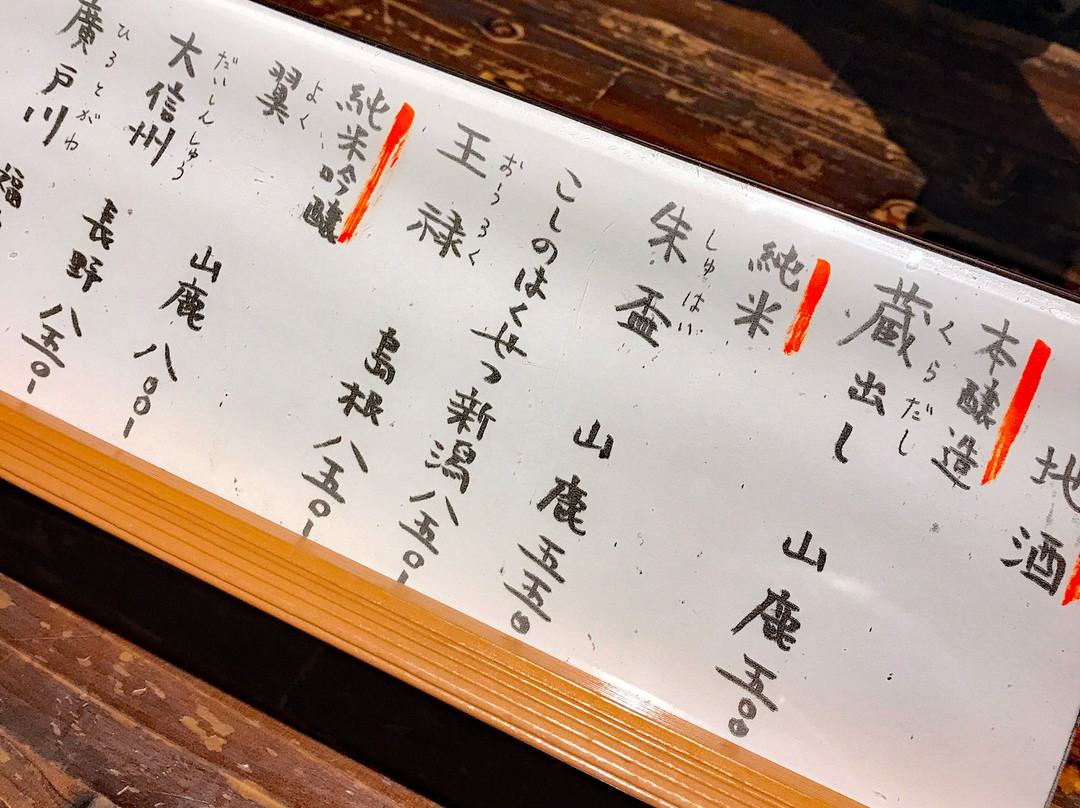 地酒
本醸造
蔵出し
くらだし
山鹿 五〇〇
純米
朱盃
しゅはい
山鹿 五五〇
このはくせつ 新潟 八五〇
王禄
おうろく
島根 八五〇
純米吟醸
翼
よく
山鹿 八〇〇
大信州
だいしんしゅう
長野 八五〇
廣戸川
ひろとがわ
福